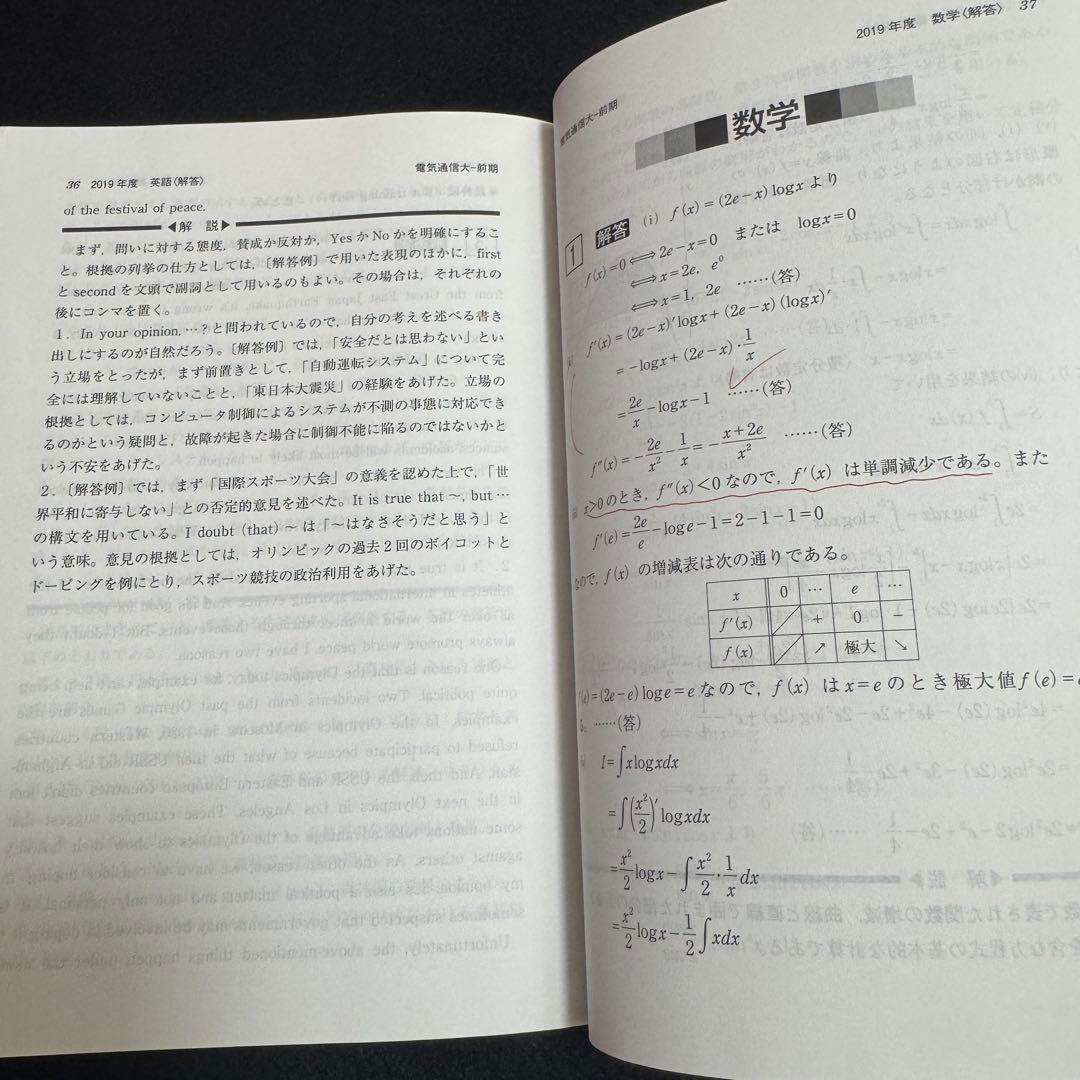 36 2019年度 英語〈解答〉 電気通信大-前期
of the festival of peace.
◀解 説▶
まず，問いに対する態度，賛成か反対か，Yes か No かを明確にするこ
と。根拠の列挙の仕方としては，〔解答例〕で用いた表現のほかに，first
と second を文頭で副詞として用いるのもよい。その場合は，それぞれの
後にコンマを置く。
1．In your opinion, …? と問われているので，自分の考えを述べる書き
出しにするのが自然だろう。〔解答例〕では，「安全だとは思わない」とい
う立場をとったが，まず前置きとして，「自動運転システム」について完
全には理解していないことと，「東日本大震災」の経験をあげた。立場の
根拠としては，コンピュータ制御によるシステムが不測の事態に対応でき
るのかという疑問と，故障が起きた場合に制御不能に陥るのではないかと
いう不安をあげた。
2．〔解答例〕では，まず「国際スポーツ大会」の意義を認めた上で，「世
界平和に寄与しない」との否定的意見を述べた。It is true that ～, but …
の構文を用いている。I doubt (that) ～ は「～はなさそうだと思う」と
いう意味。意見の根拠としては，オリンピックの過去2回のボイコットと
ドーピングを例にとり，スポーツ競技の政治利用をあげた。
電気通信大-前期 2019年度 数学〈解答〉 37
数学
1 解答 (i) f(x)=(2e-x)logx より
f(x)=0⟺2e-x=0 または logx=0
⟺x=2e, e⁰
⟺x=1, 2e ……(答)
f′(x)=(2e-x)′logx+(2e-x)(logx)′
=-logx+(2e-x)・1/x
=2e/x-logx-1 ……(答)
f″(x)=-2e/x²-1/x=-(x+2e)/x² ……(答)
x>0のとき，f″(x)<0なので，f′(x) は単調減少である。また
f′(e)=2e/e-loge-1=2-1-1=0
なので，f(x) の増減表は次の通りである。
x 0 … e …
f′(x) + 0 -
f(x) ↗ 極大 ↘
(e)=(2e-e)loge=e なので，f(x) は x=e のとき極大値 f(e)=e
……(答)
I=∫xlogxdx
=∫(x²/2)′logxdx
=x²/2 logx-∫x²/2・1/x dx
=x²/2 logx-1/2∫xdx